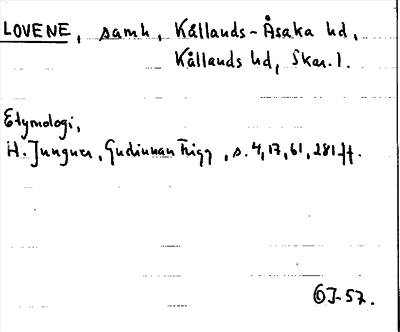 LOVENE, samh, Kållands-Åsaka hd,
Kållands hd, Skar. l.
Etymologi,
H. Jungner, Gudinnan Frigg, s. 4, 17, 61, 281 ff.
ÖJ-57.